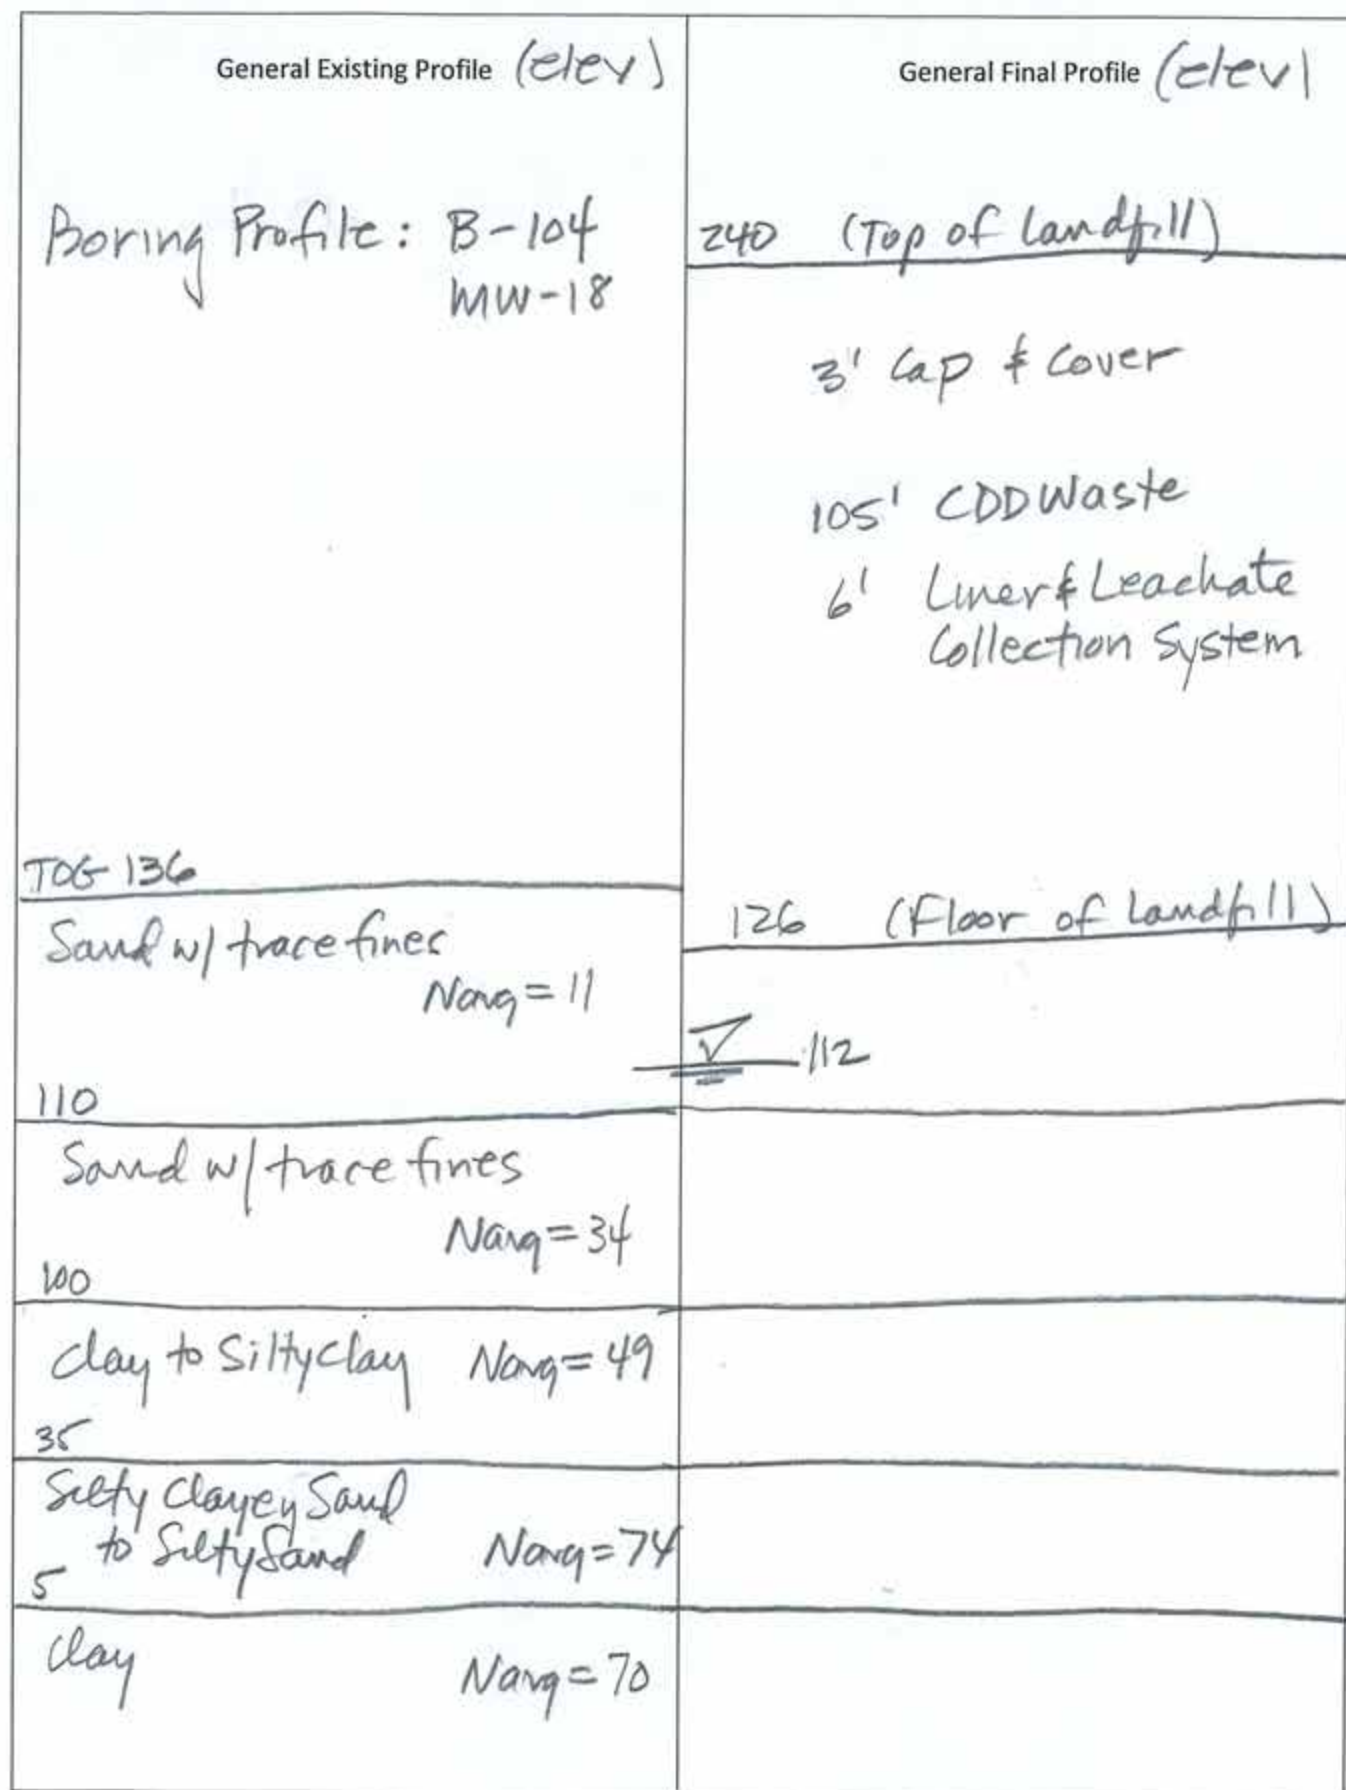 General Existing Profile (elev)
Boring Profile: B-104
MW-18
TOG 136
Sand w/ trace fines
Navg = 11
110
Sand w/ trace fines
Navg = 34
100
Clay to Silty Clay Navg = 49
35
Silty Clayey Sand
to Silty Sand Navg = 74
5
Clay
Navg = 70
General Final Profile (elev)
240 (Top of Landfill)
3' Cap & Cover
105' CDD Waste
6' Liner & Leachate
Collection System
126 (Floor of Landfill)
112